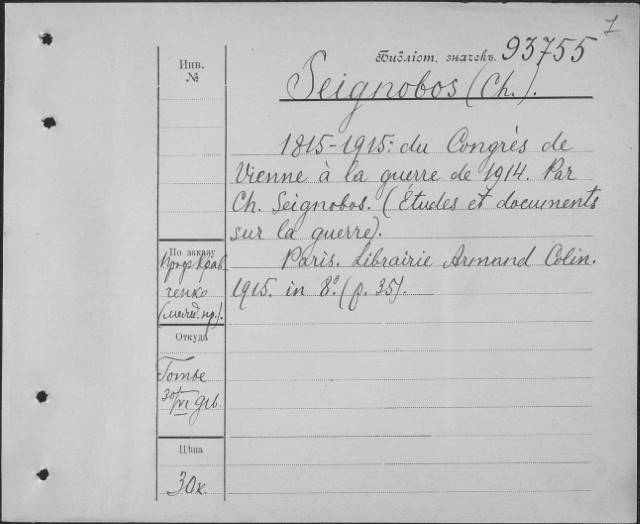 7
Библіот. значекъ. 93755
Инв.
№
Seignobos (Ch.).
1815-1915: du Congrès de
Vienne à la guerre de 1914. Par
Ch. Seignobos. (Études et documents
sur la guerre).
Paris. Librairie Armand Colin.
1915. in 8º. (p. 35).
По заказу
Проф Крав
ченко
Откуда
30/VI
Цѣна
30 к.